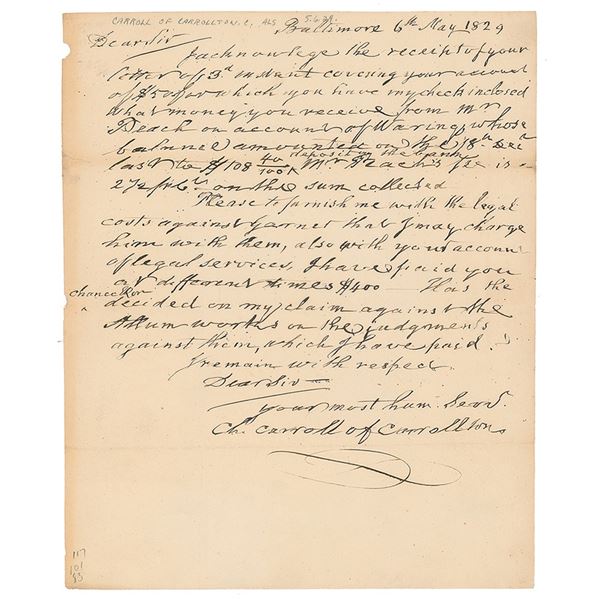 CARROLL OF CARROLLTON, C, ALS 5.6.29.
Baltimore 6th May 1829
Dear Sir
I acknowlege the receipt of your
letter of 3d instant covering your account
of $50 for which you have my check inclosed
What money you receive from Mr
Beach on account of Waring, whose
balance amounted on the 18th
last to $108 40/100 deposit in the Bank Mr Beach's fee is
2½ pr Ct on the sum collected
Please to furnish me with the legal
costs against Garnet that I may charge
him with them, also with your account
of legal services, I have paid you
at different times $400 Has the
chancellor
decided on my claim against the
Allum works on the judgments
against them, which I have paid.
I remain with respect
Dear Sir
your most hum. Servt.
Ch. Carroll of Carrollton
117
101
83